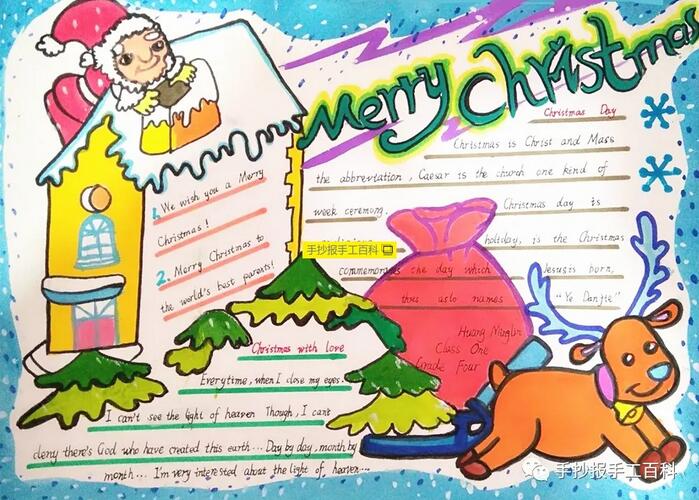 Merry Christmas
Christmas Day
Christmas is Christ and Mass
the abbreviation, Caesar is the church one kind of
week ceremong. Christmas day is
holiday, is the Christmas
commemorates the day which Jesus is born,
this aslo names "Ye Danjie"
Huang Minglin
Class One
Grade Four
1. We wish you a Merry
Christmas!
2. Merry Christmas to
the world's best parents!
手抄报手工百科
Christmas with love
Everytime, when I close my eyes.
I can't see the light of heaven Though, I can't
deny there's God who have created this earth... Day by day, month by
month.... I'm very interested about the light of heaven...
手抄报手工百科